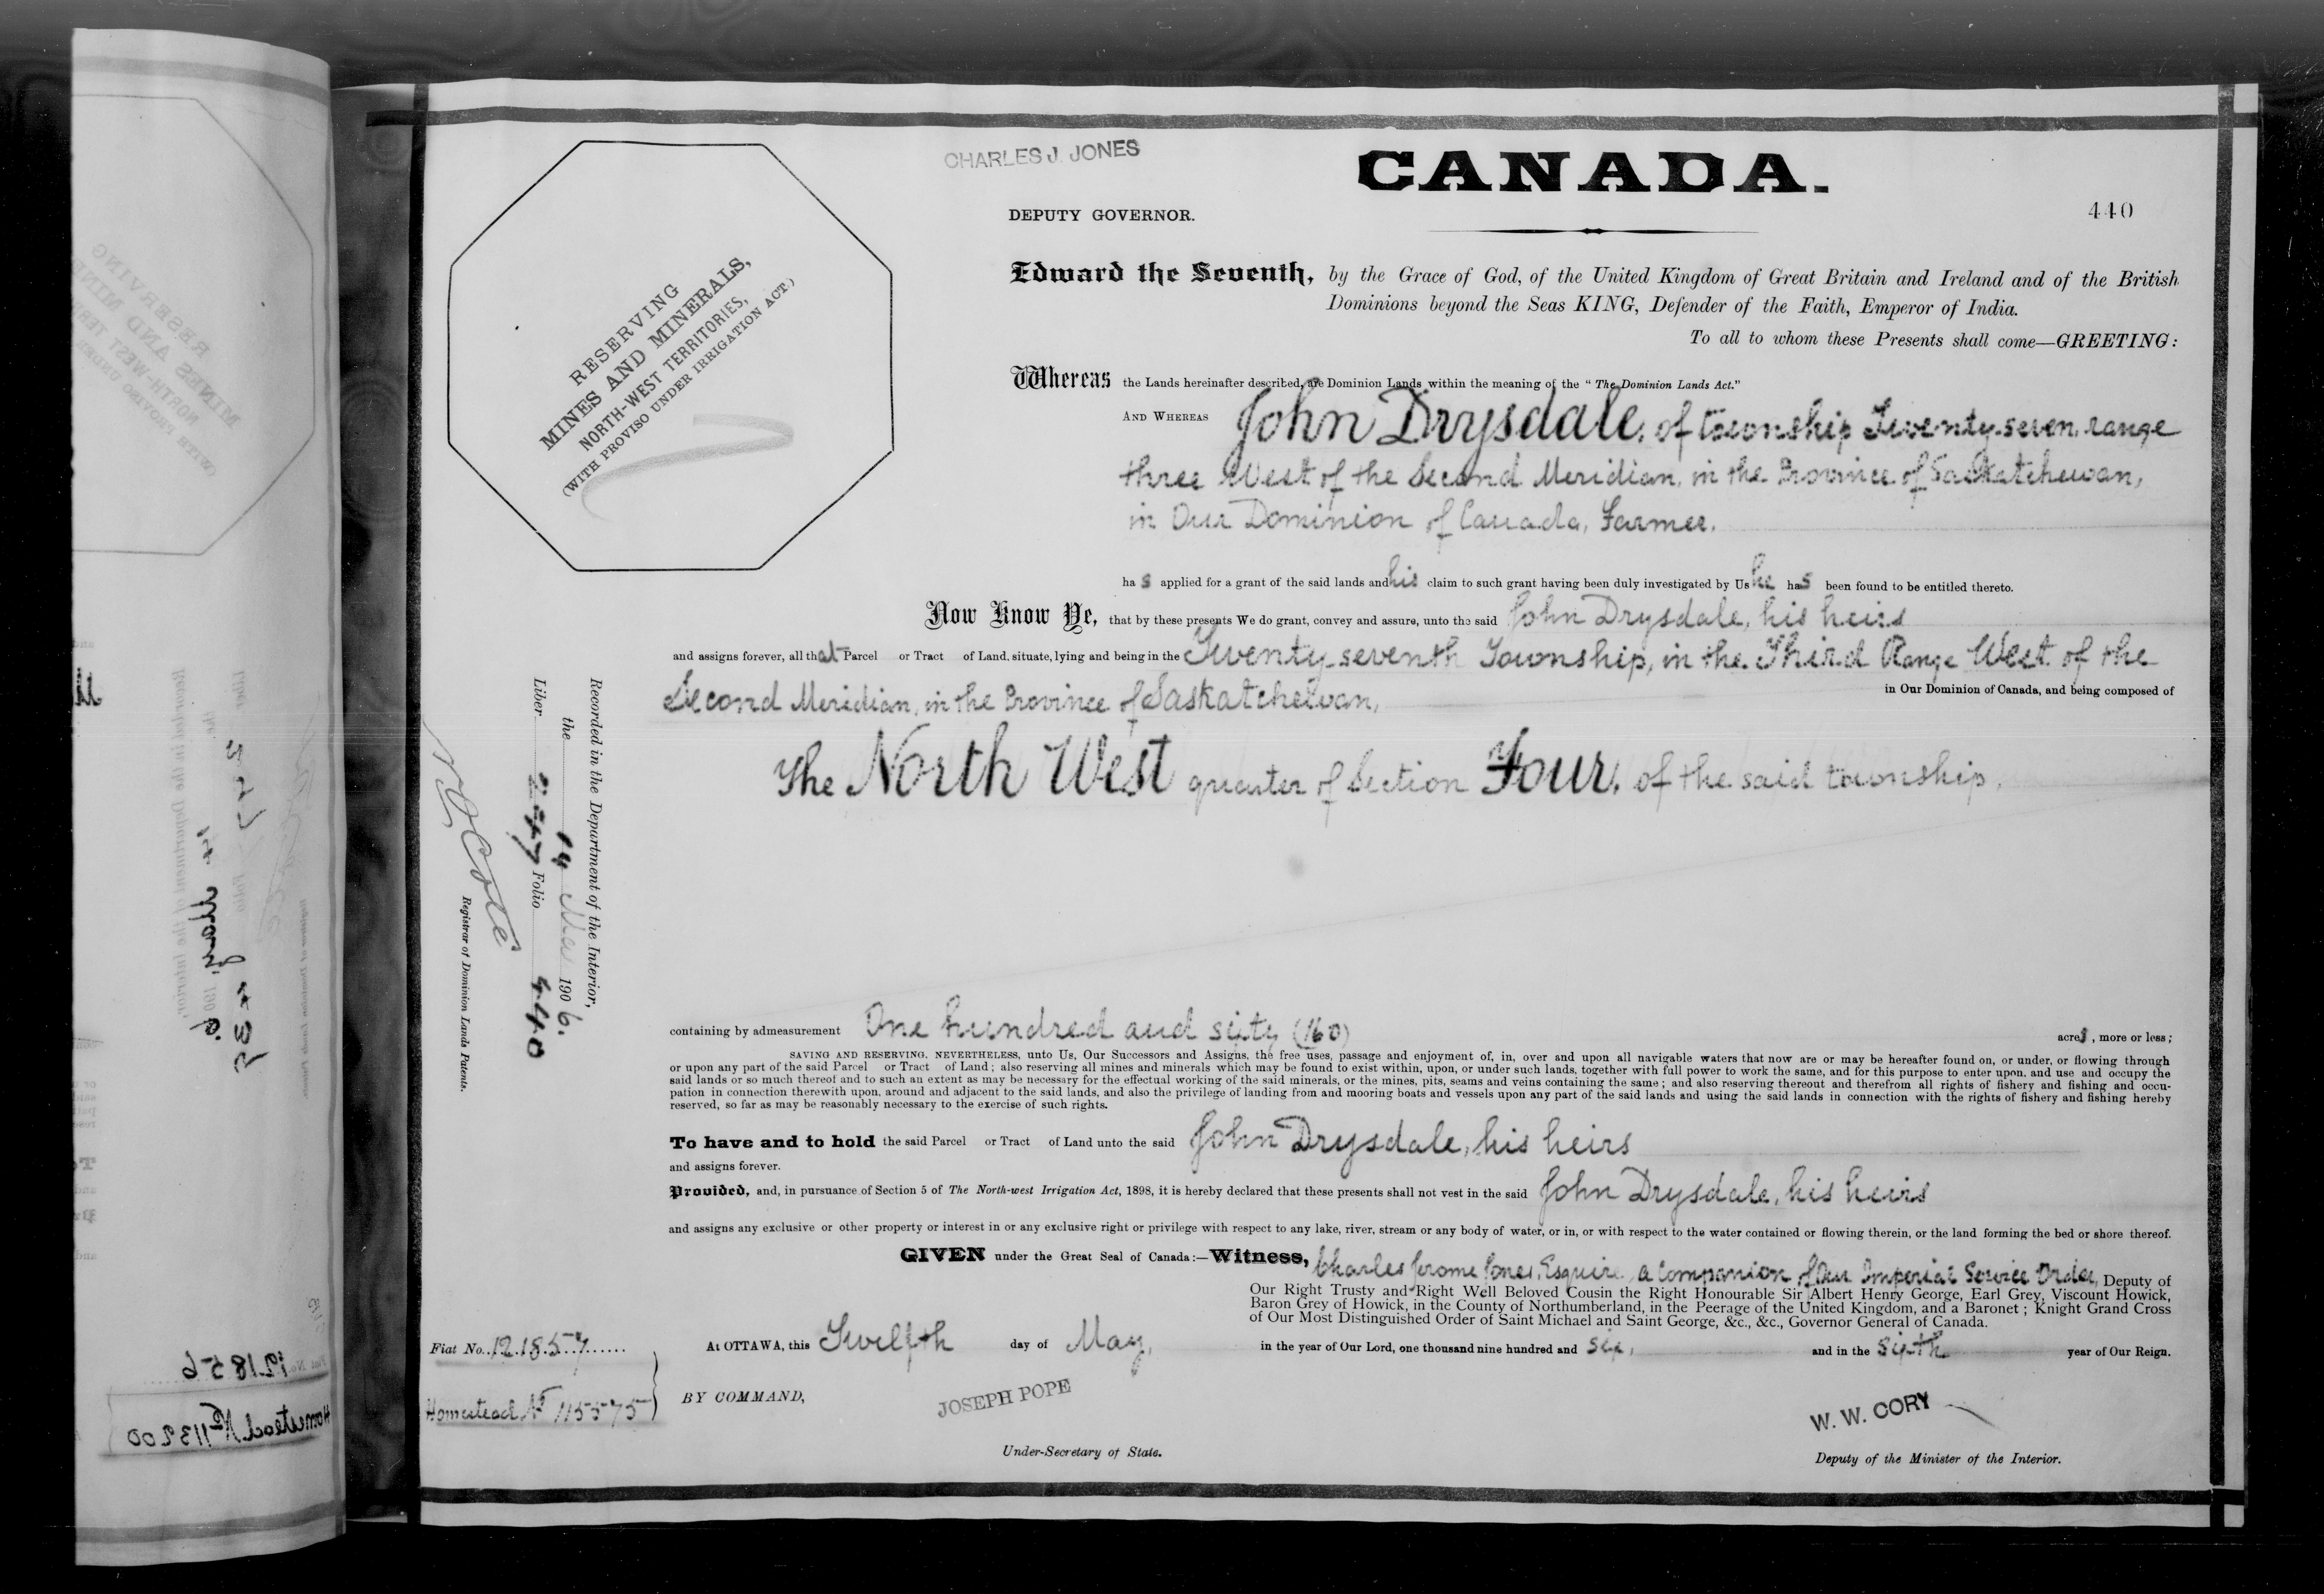 CHARLES J. JONES
CANADA.
DEPUTY GOVERNOR.
440
RESERVING
MINES AND MINERALS,
NORTH-WEST TERRITORIES,
(WITH PROVISO UNDER IRRIGATION ACT.)
Edward the Seventh, by the Grace of God, of the United Kingdom of Great Britain and Ireland and of the British
Dominions beyond the Seas KING, Defender of the Faith, Emperor of India.
To all to whom these Presents shall come—GREETING:
Whereas the Lands hereinafter described, are Dominion Lands within the meaning of the “ The Dominion Lands Act.”
AND WHEREAS John Drysdale, of township Twenty-seven, range
three West of the Second Meridian, in the Province of Saskatchewan,
in Our Dominion of Canada, Farmer.
has applied for a grant of the said lands and his claim to such grant having been duly investigated by Us he has been found to be entitled thereto.
Now Know Ye, that by these presents We do grant, convey and assure, unto the said John Drysdale, his heirs
and assigns forever, all that Parcel or Tract of Land, situate, lying and being in the Twenty-seventh Township, in the Third Range West of the
Second Meridian, in the Province of Saskatchewan,
in Our Dominion of Canada, and being composed of
The North West quarter of Section Four, of the said township.
Recorded in the Department of the Interior,
the 14 May 1906.
Liber 247 Folio 440
N O Coté
Registrar of Dominion Lands Patents.
containing by admeasurement One hundred and sixty (160) acres, more or less;
SAVING AND RESERVING, NEVERTHELESS, unto Us, Our Successors and Assigns, the free uses, passage and enjoyment of, in, over and upon all navigable waters that now are or may be hereafter found on, or under, or flowing through
or upon any part of the said Parcel or Tract of Land; also reserving all mines and minerals which may be found to exist within, upon, or under such lands, together with full power to work the same, and for this purpose to enter upon, and use and occupy the
said lands or so much thereof and to such an extent as may be necessary for the effectual working of the said minerals, or the mines, pits, seams and veins containing the same; and also reserving thereout and therefrom all rights of fishery and fishing and occu-
pation in connection therewith upon, around and adjacent to the said lands, and also the privilege of landing from and mooring boats and vessels upon any part of the said lands and using the said lands in connection with the rights of fishery and fishing hereby
reserved, so far as may be reasonably necessary to the exercise of such rights.
To have and to hold the said Parcel or Tract of Land unto the said John Drysdale, his heirs
and assigns forever.
Provided, and, in pursuance of Section 5 of The North-west Irrigation Act, 1898, it is hereby declared that these presents shall not vest in the said John Drysdale, his heirs
and assigns any exclusive or other property or interest in or any exclusive right or privilege with respect to any lake, river, stream or any body of water, or in, or with respect to the water contained or flowing therein, or the land forming the bed or shore thereof.
GIVEN under the Great Seal of Canada:—Witness, Charles Jerome Jones, Esquire, a Companion of Our Imperial Service Order, Deputy of
Our Right Trusty and Right Well Beloved Cousin the Right Honourable Sir Albert Henry George, Earl Grey, Viscount Howick,
Baron Grey of Howick, in the County of Northumberland, in the Peerage of the United Kingdom, and a Baronet; Knight Grand Cross
of Our Most Distinguished Order of Saint Michael and Saint George, &c., &c., Governor General of Canada.
Fiat No. 121857
At OTTAWA, this Twelfth day of May, in the year of Our Lord, one thousand nine hundred and six, and in the Sixth year of Our Reign.
Homestead No 115575
BY COMMAND,
JOSEPH POPE
Under-Secretary of State.
W. W. CORY
Deputy of the Minister of the Interior.
121856
Homestead No 113200